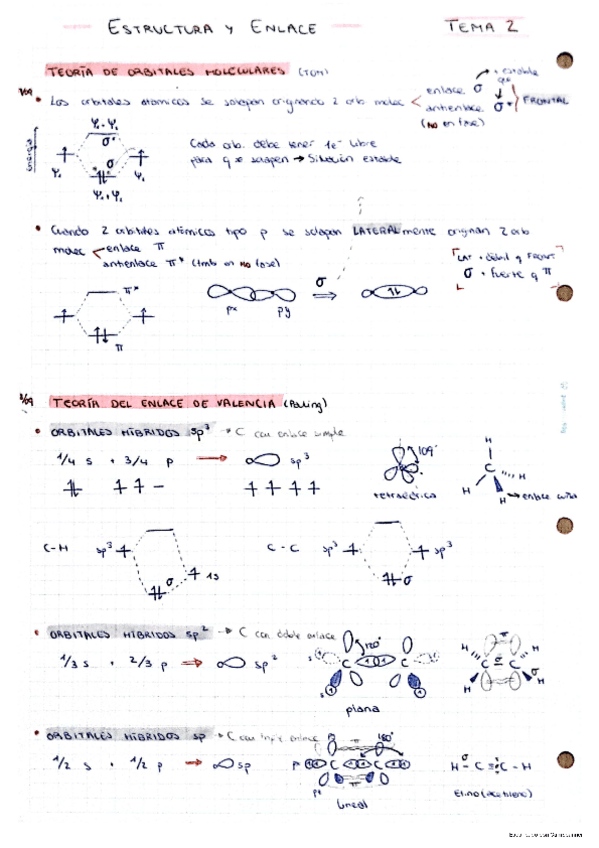 ESTRUCTURA Y ENLACE
TEMA 2
TEORÍA DE ORBITALES MOLECULARES (TOM)
+ estable que
Los orbitales atómicos se solapan originando 2 orb molec
enlace σ
antienlace σ* FRONTAL
(NO en fase)
Energía
σ*
σ
Cada orb. debe tener 1e⁻ libre
para q se solapen → Situación estable
Cuando 2 orbitales atómicos tipo p se solapan LATERALmente originan 2 orb
molec
enlace π
antienlace π* (tmb en NO fase)
LAT + débil q FRONT
σ + fuerte q π
π*
π
px py
σ
TEORÍA DEL ENLACE DE VALENCIA (Pauling)
ORBITALES HÍBRIDOS sp³ → C con enlace simple
1/4 s + 3/4 p → sp³
109°
tetraédrica
H
C
H
H
enlace cuña
C-H sp³ σ 1s
C-C sp³ sp³ σ
ORBITALES HÍBRIDOS sp² → C con doble enlace
1/3 s + 2/3 p → sp²
120°
C C
plana
π
H H
C σ C
H H
σ
ORBITALES HÍBRIDOS sp → C con triple enlace
1/2 s + 1/2 p → sp
180°
C C
lineal
H - C ≡ C - H
σ
Etino (acetileno)